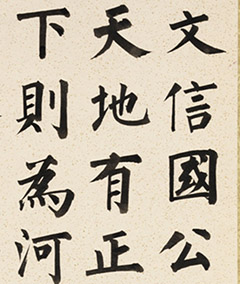 文信國公
天地有正
下則為河